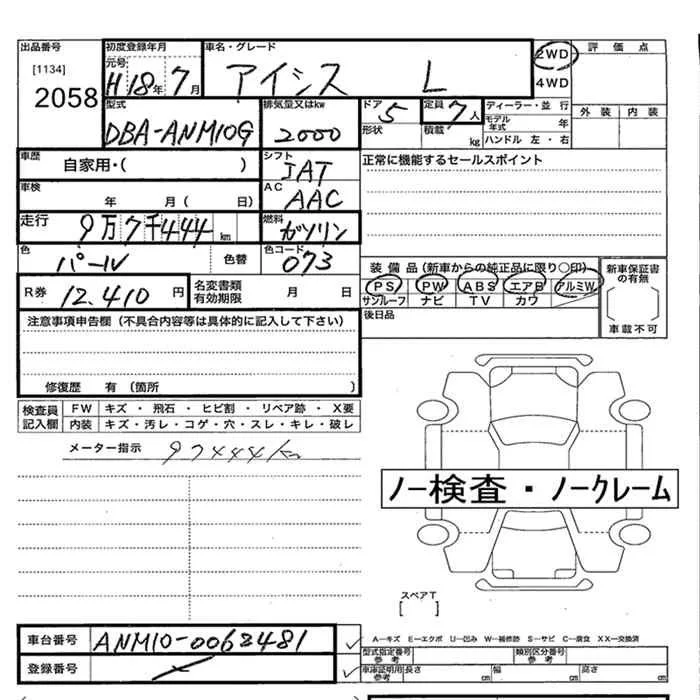 出品番号 初度登録年月 車名・グレード 2WD 評価点
[1134] 元号 H18年7月 アイシス L 4WD
2058 型式 排気量又はkw ドア 5 定員 7人 ディーラー・並行 外装 内装
DBA-ANM10G 2000 形状 積載 kg モデル年式 年
ハンドル 左・右
車歴 自家用・( ) シフト IAT 正常に機能するセールスポイント
車検 年 月( 日) AC AAC
走行 9万7千444km 燃料 ガソリン
色 パール 色替 色コード 073 装備品(新車からの純正品に限り○印) 新車保証書の有無
R券 12.410円 名変書類有効期限 月 日 PS PW ABS エアB アルミW
サンルーフ ナビ TV カワ 車載不可
注意事項申告欄(不具合内容等は具体的に記入して下さい) 後日品
修復歴 有(箇所 )
検査員 FW キズ・飛石・ヒビ割・リペア跡・X要
記入欄 内装 キズ・汚レ・コゲ・穴・スレ・キレ・破レ
メーター指示 97444km
ノー検査・ノークレーム
スペアT
[ ]
車台番号 ANM10-0063481 A―キズ E―エクボ U―凹み W―補修跡 S―サビ C―腐食 XX―交換済
型式指定番号 参考 類別区分番号 参考
登録番号 車庫証明用 参考 長さ cm 幅 cm 高さ cm